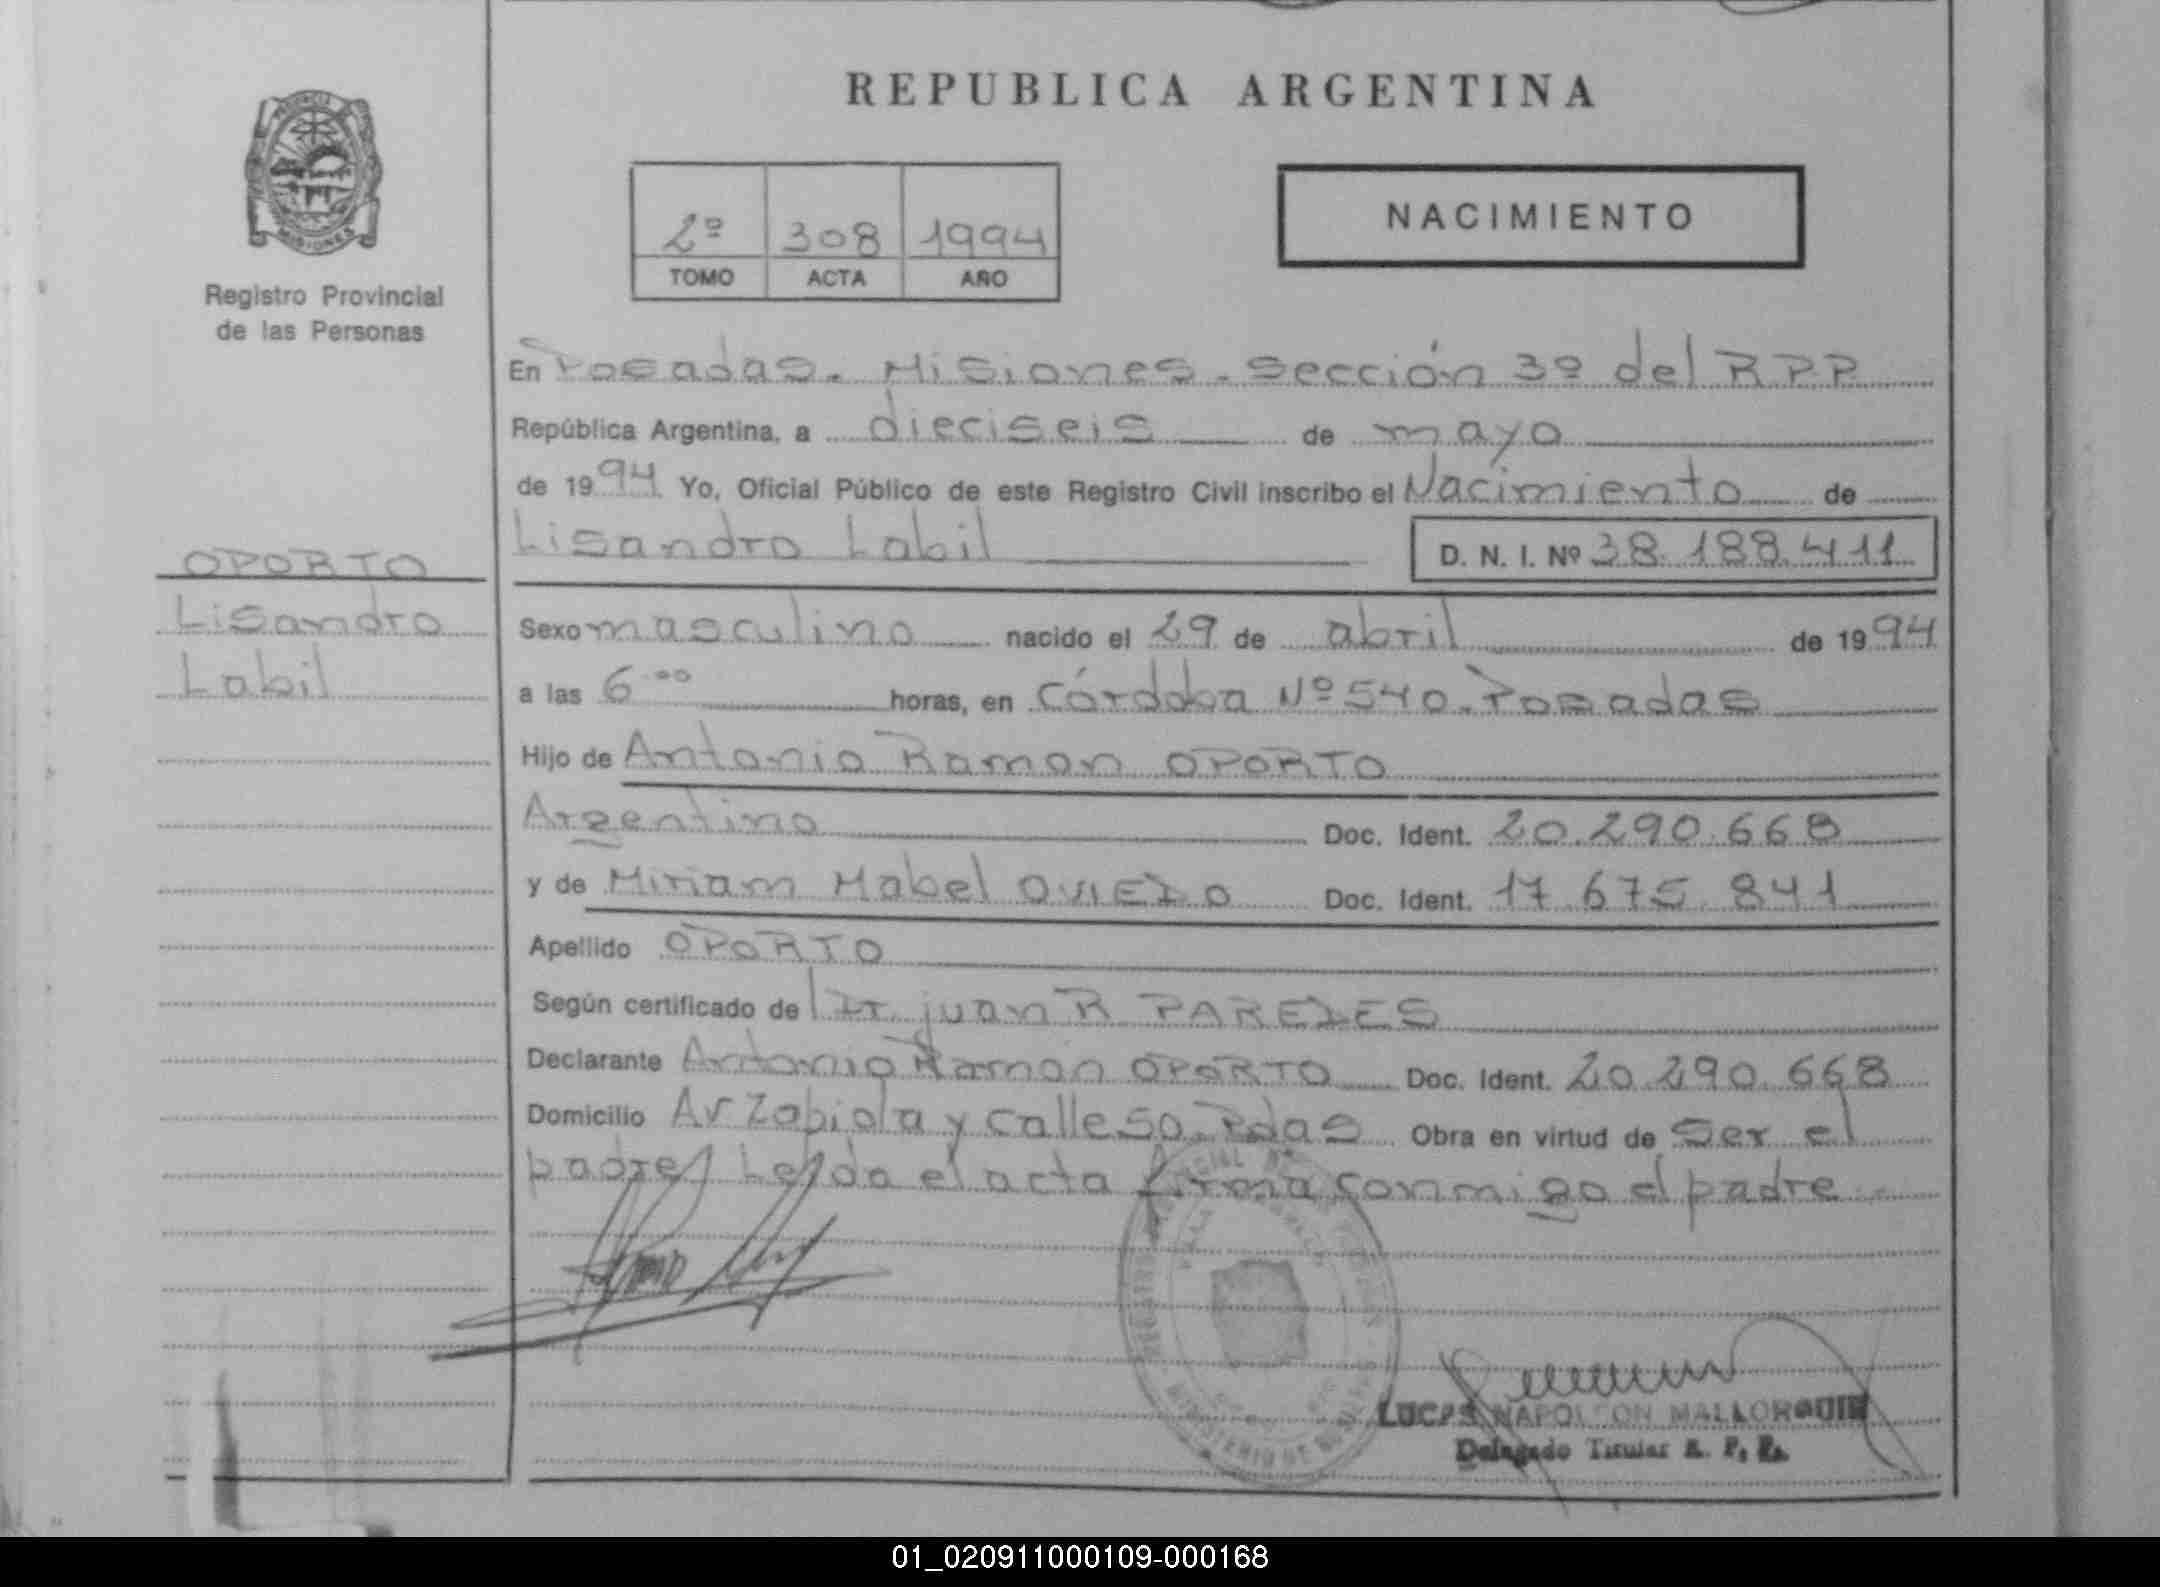 REPUBLICA ARGENTINA
NACIMIENTO
2º 308 1994
TOMO ACTA AÑO
PROVINCIA
MISIONES
Registro Provincial
de las Personas
En Posadas. Misiones. Sección 3º del RPP
República Argentina, a dieciseis de mayo
de 1994 Yo, Oficial Público de este Registro Civil inscribo el Nacimiento de
Lisandro Labil D. N. I. Nº 38.188.411
OPORTO
Lisandro
Labil
Sexo masculino nacido el 29 de abril de 1994
a las 6.00 horas, en Córdoba Nº 540. Posadas
Hijo de Antonio Ramon OPORTO
Argentino Doc. Ident. 20.290.668
y de Miriam Mabel OVIEDO Doc. Ident. 17.675.841
Apellido OPORTO
Según certificado de Dr. juan R PAREDES
Declarante Antonio Ramon OPORTO Doc. Ident. 20.290.668
Domicilio Av Zapiola y calle 50. Pdas Obra en virtud de Ser el
padre Leida el acta firma conmigo el padre.
MINISTERIO DE
LUCAS NAPOLEON MALLORQUIN
Delegado Titular R. P. P.
01_020911000109-000168